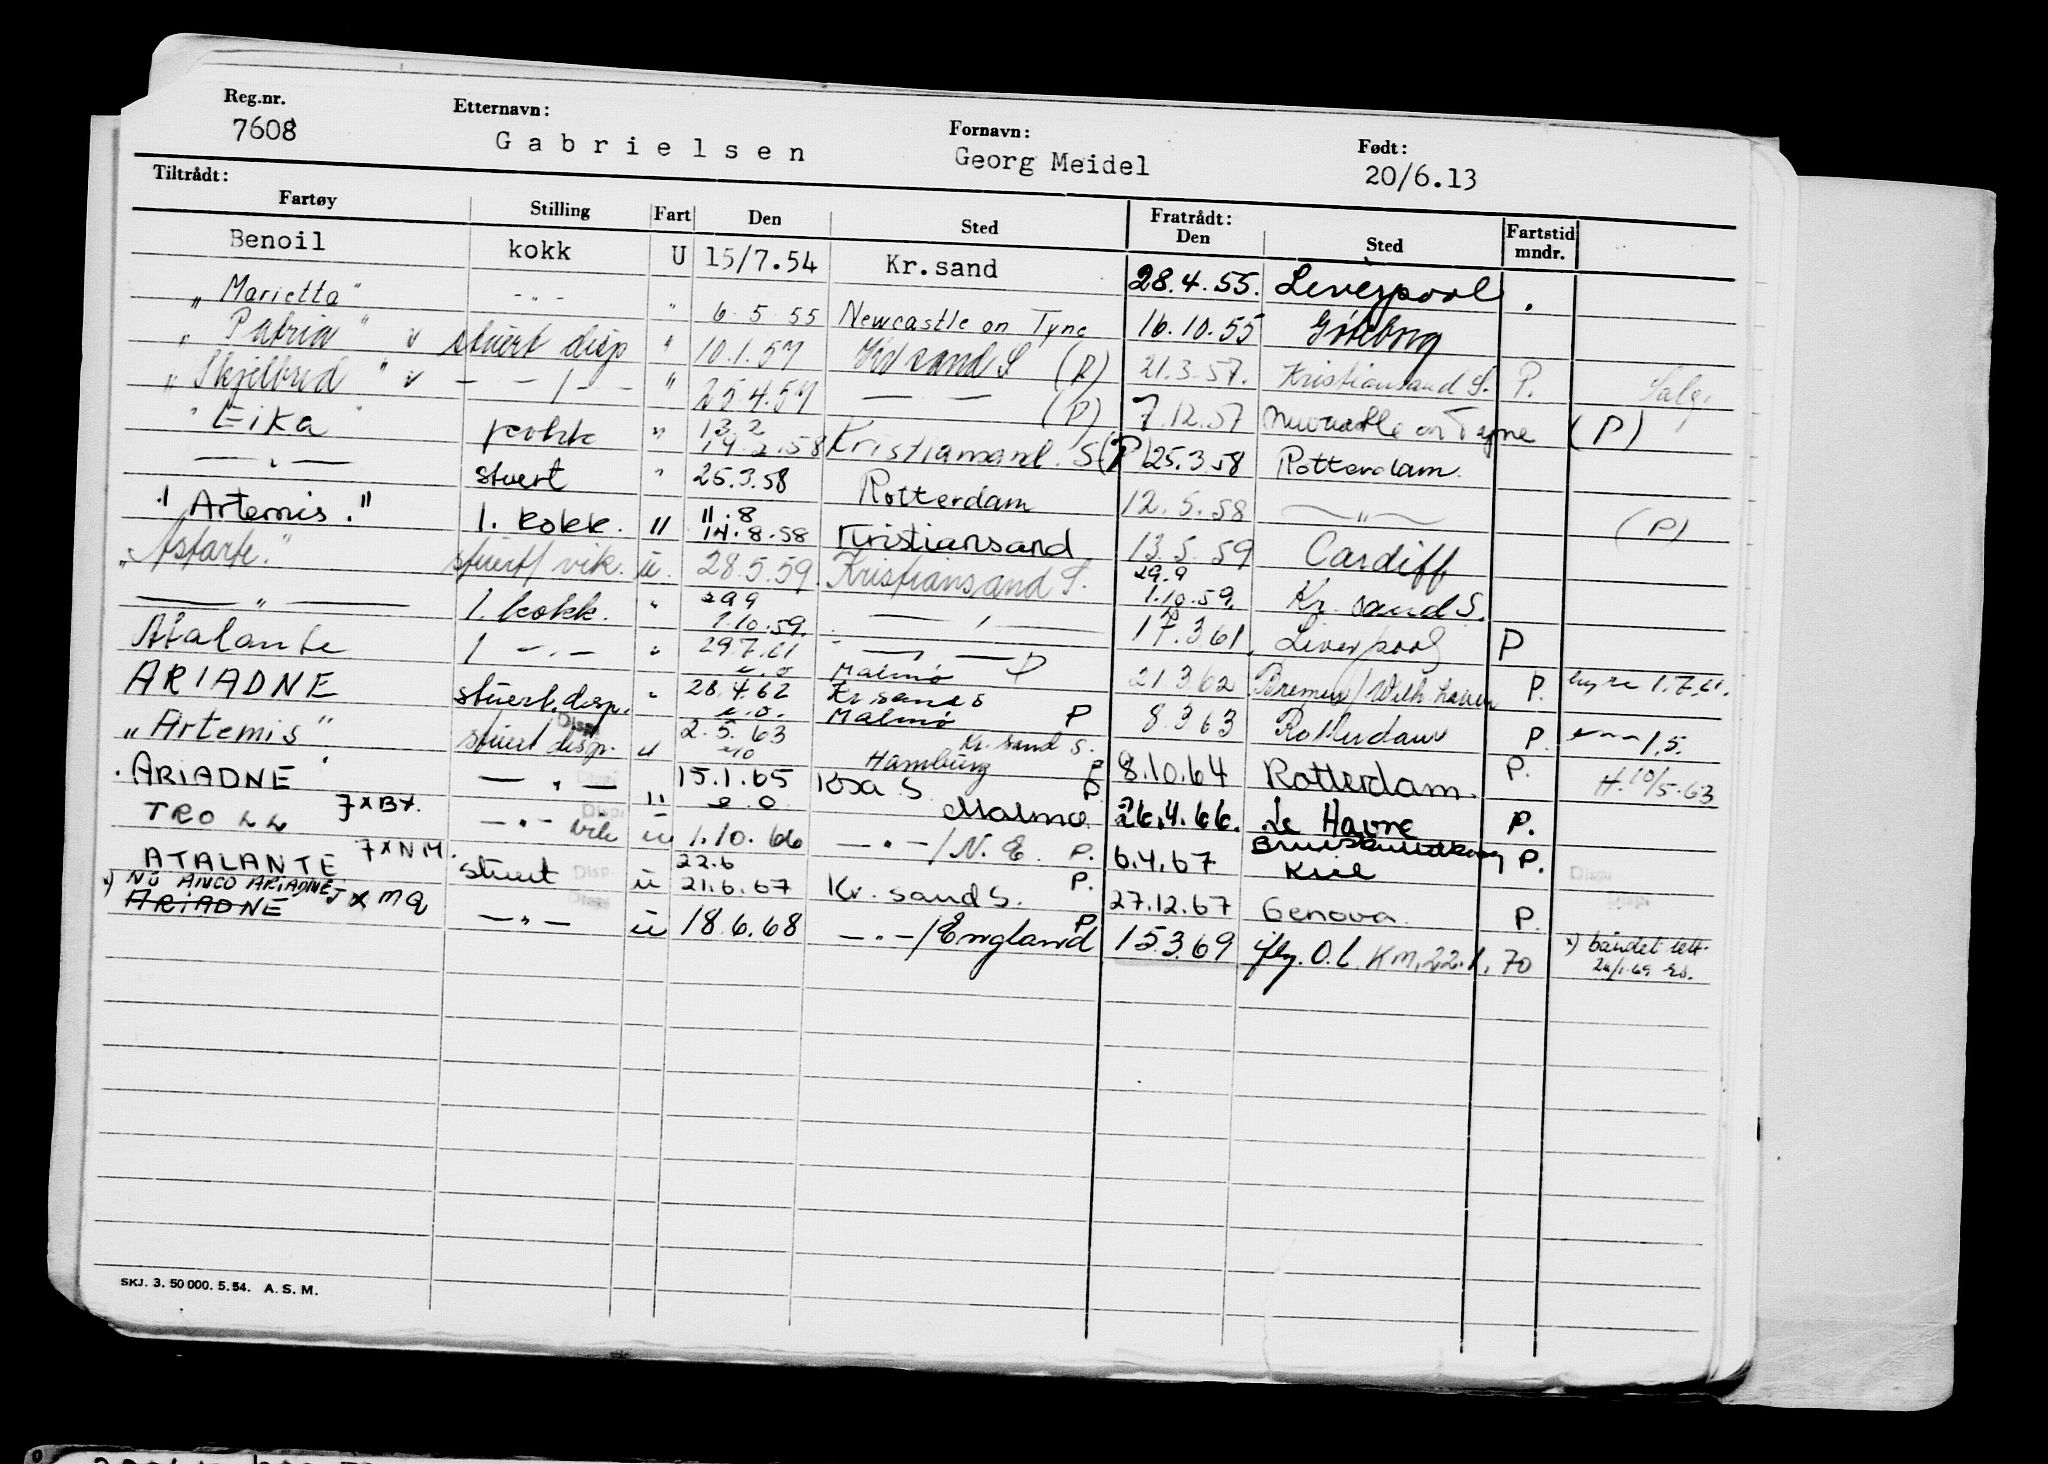 Reg.nr. Etternavn: Fornavn: Født:
7608 Gabrielsen Georg Meidel 20/6.13
Tiltrådt: Fratrådt:
Fartøy Stilling Fart Den Sted Den Sted Fartstid mndr.
Benoil kokk U 15/7.54 Kr.sand 28.4.55. Liverpool
"Marietta" -"- " 6.5.55 Newcastle on Tyne 16.10.55 Göteborg
"Patria" v stuert disp " 10.1.57 sand S (P) 21.3.57. Kristiansand S. P. Salg.
"Skjelbred" v - - " - - " 25.4.57 — — (P) 7.12.57 Newcastle on Tyne (P)
"Eika" kokk " 13.2 14.2.58 Kristiansand. S (P) 25.3.58 Rotterdam.
— " — stuert " 25.3.58 Rotterdam 12.5.58 — " — (P)
"Artemis." 1. kokk. " 11.8 14.8.58 Kristiansand 13.5.59 Cardiff
"Astarte." stuert/vik. ü. 28.5.59. Kristiansand S. 29.9 1.10.59. Kr. sand S.
— " — 1. kokk. " 29 9 1.10.59. — " — 17.3 61. Liverpool P
Atalante 1 -"- " 29.7.61 — " — P 21 3 62 Bremen/Wilh.haven P. hyre 1.7.61.
ARIADNE stuert.disp. " e.o. 28.4.62 Malmø Kr sand S P 8.3 63 Rotterdam P. 1.5.
"Artemis" stuert disp. Disp. u e.o. 2.5.63 Malmø Kr. sand S. P 8.10.64 Rotterdam. P. H. 10/5.63
ARIADNE — " — Disp. " e/o 15.1.65 Hamburg Krsa S P 26.4.66. Le Havre P.
TROLL 7xBx. — " — vik Disp. ü e o 1.10.66 Malmø — " — / N.E. P. 6.4.67 Brunsbüttelkoog Kiel P.
ATALANTE 7xNM. stuert Disp. ü 22.6 21.6.67 Kr. sand S. P. 27.12.67 Genova. P. Disp.
x) NÅ ANCO ARIADNE JxMQ
ARIADNE — " — Disp. ü 18.6.68 — " — /England P 15.3.69 fly. O.L. KM. 22.1.70 x) båndet rett. 24/1-69 Es.
SKJ. 3. 50 000. 5. 54. A. S. M.